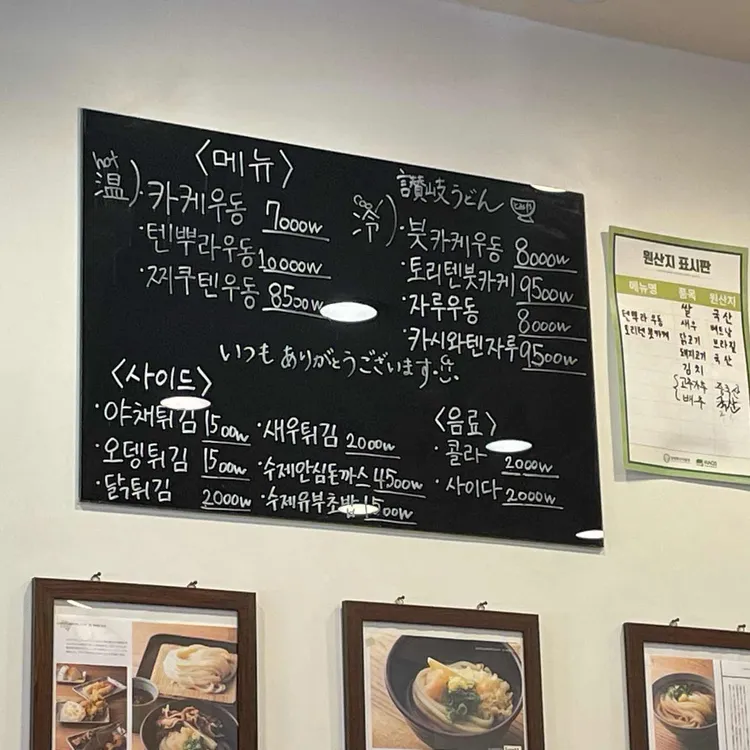 〈메뉴〉
hot
温)
·카케우동 7000w
·텐뿌라우동 10000w
·찌쿠텐우동 8500w
讃岐うどん
cool
冷)
·붓카케우동 8000w
·토리텐붓카케 9500w
·자루우동 8000w
·카시와텐자루 9500w
いつもありがとうございます。
〈사이드〉
·야채튀김 1500w
·오뎅튀김 1500w
·닭튀김 2000w
·새우튀김 2000w
·수제안심돈까스 4500w
·수제유부초밥 1500w
〈음료〉
·콜라 2000w
·사이다 2000w
원산지 표시판
메뉴명 품목 원산지
쌀 국산
텐뿌라우동 새우 베트남
토리텐붓카케 닭고기 브라질
돼지고기 국산
김치
고추가루 중국산
배추 국산